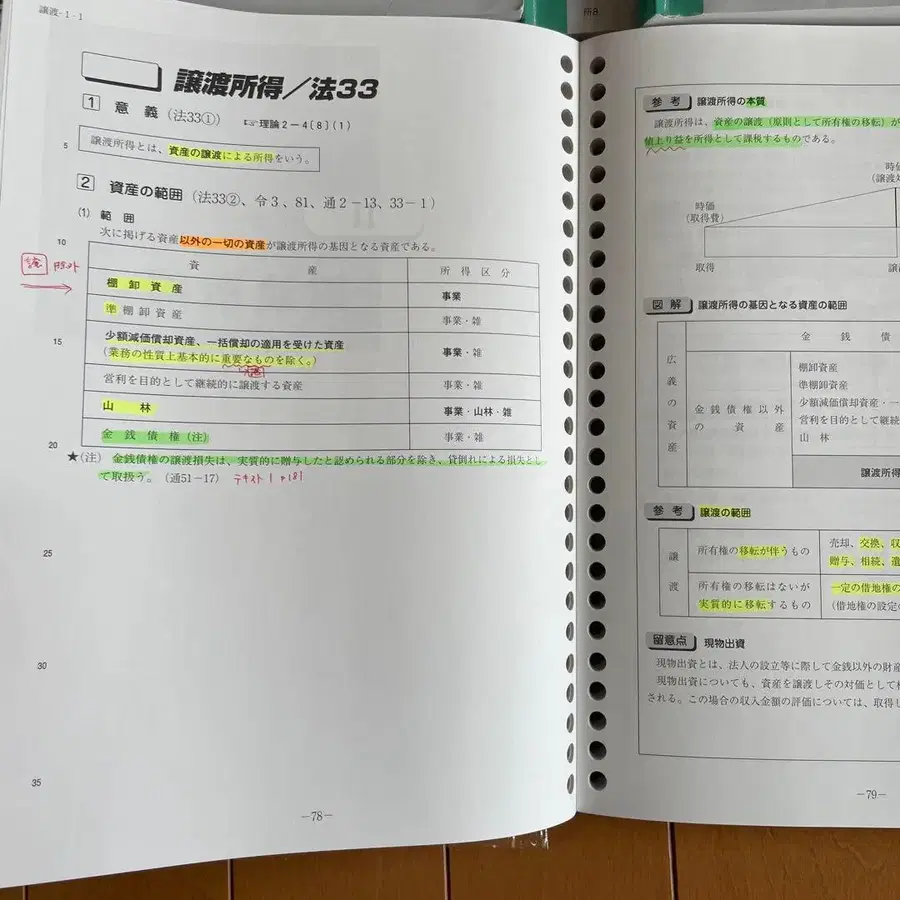 譲渡-1-1
譲渡所得／法33
1 意義（法33①） ☞理論2－4〔8〕(1)
5
譲渡所得とは、資産の譲渡による所得をいう。
2 資産の範囲（法33②、令3、81、通2－13、33－1）
(1) 範囲
10
次に掲げる資産以外の一切の資産が譲渡所得の基因となる資産である。
資産 所得区分
棚卸資産 事業
準棚卸資産 事業・雑
15
少額減価償却資産、一括償却の適用を受けた資産
（業務の性質上基本的に重要なものを除く。） 事業・雑
営利を目的として継続的に譲渡する資産 事業・雑
山林 事業・山林・雑
20
金銭債権（注） 事業・雑
★（注） 金銭債権の譲渡損失は、実質的に贈与したと認められる部分を除き、貸倒れによる損失とし
て取扱う。（通51－17） テキスト1 P181
25
30
35
－78－
所8.
参考 譲渡所得の本質
譲渡所得は、資産の譲渡（原則として所有権の移転）が
値上り益を所得として課税するものである。
時価
（譲渡対
時価
（取得費）
取得 譲
図解 譲渡所得の基因となる資産の範囲
広義の資産
金銭債
金銭債権以外
の資産
棚卸資産
準棚卸資産
少額減価償却資産・一
営利を目的として継続
山林
譲渡所得
参考 譲渡の範囲
譲渡
所有権の移転が伴うもの
売却、交換、収
贈与、相続、遺
所有権の移転はないが
実質的に移転するもの
一定の借地権の
（借地権の設定の
留意点 現物出資
現物出資とは、法人の設立等に際して金銭以外の財産
現物出資についても、資産を譲渡しその対価として株
される。この場合の収入金額の評価については、取得し
－79－